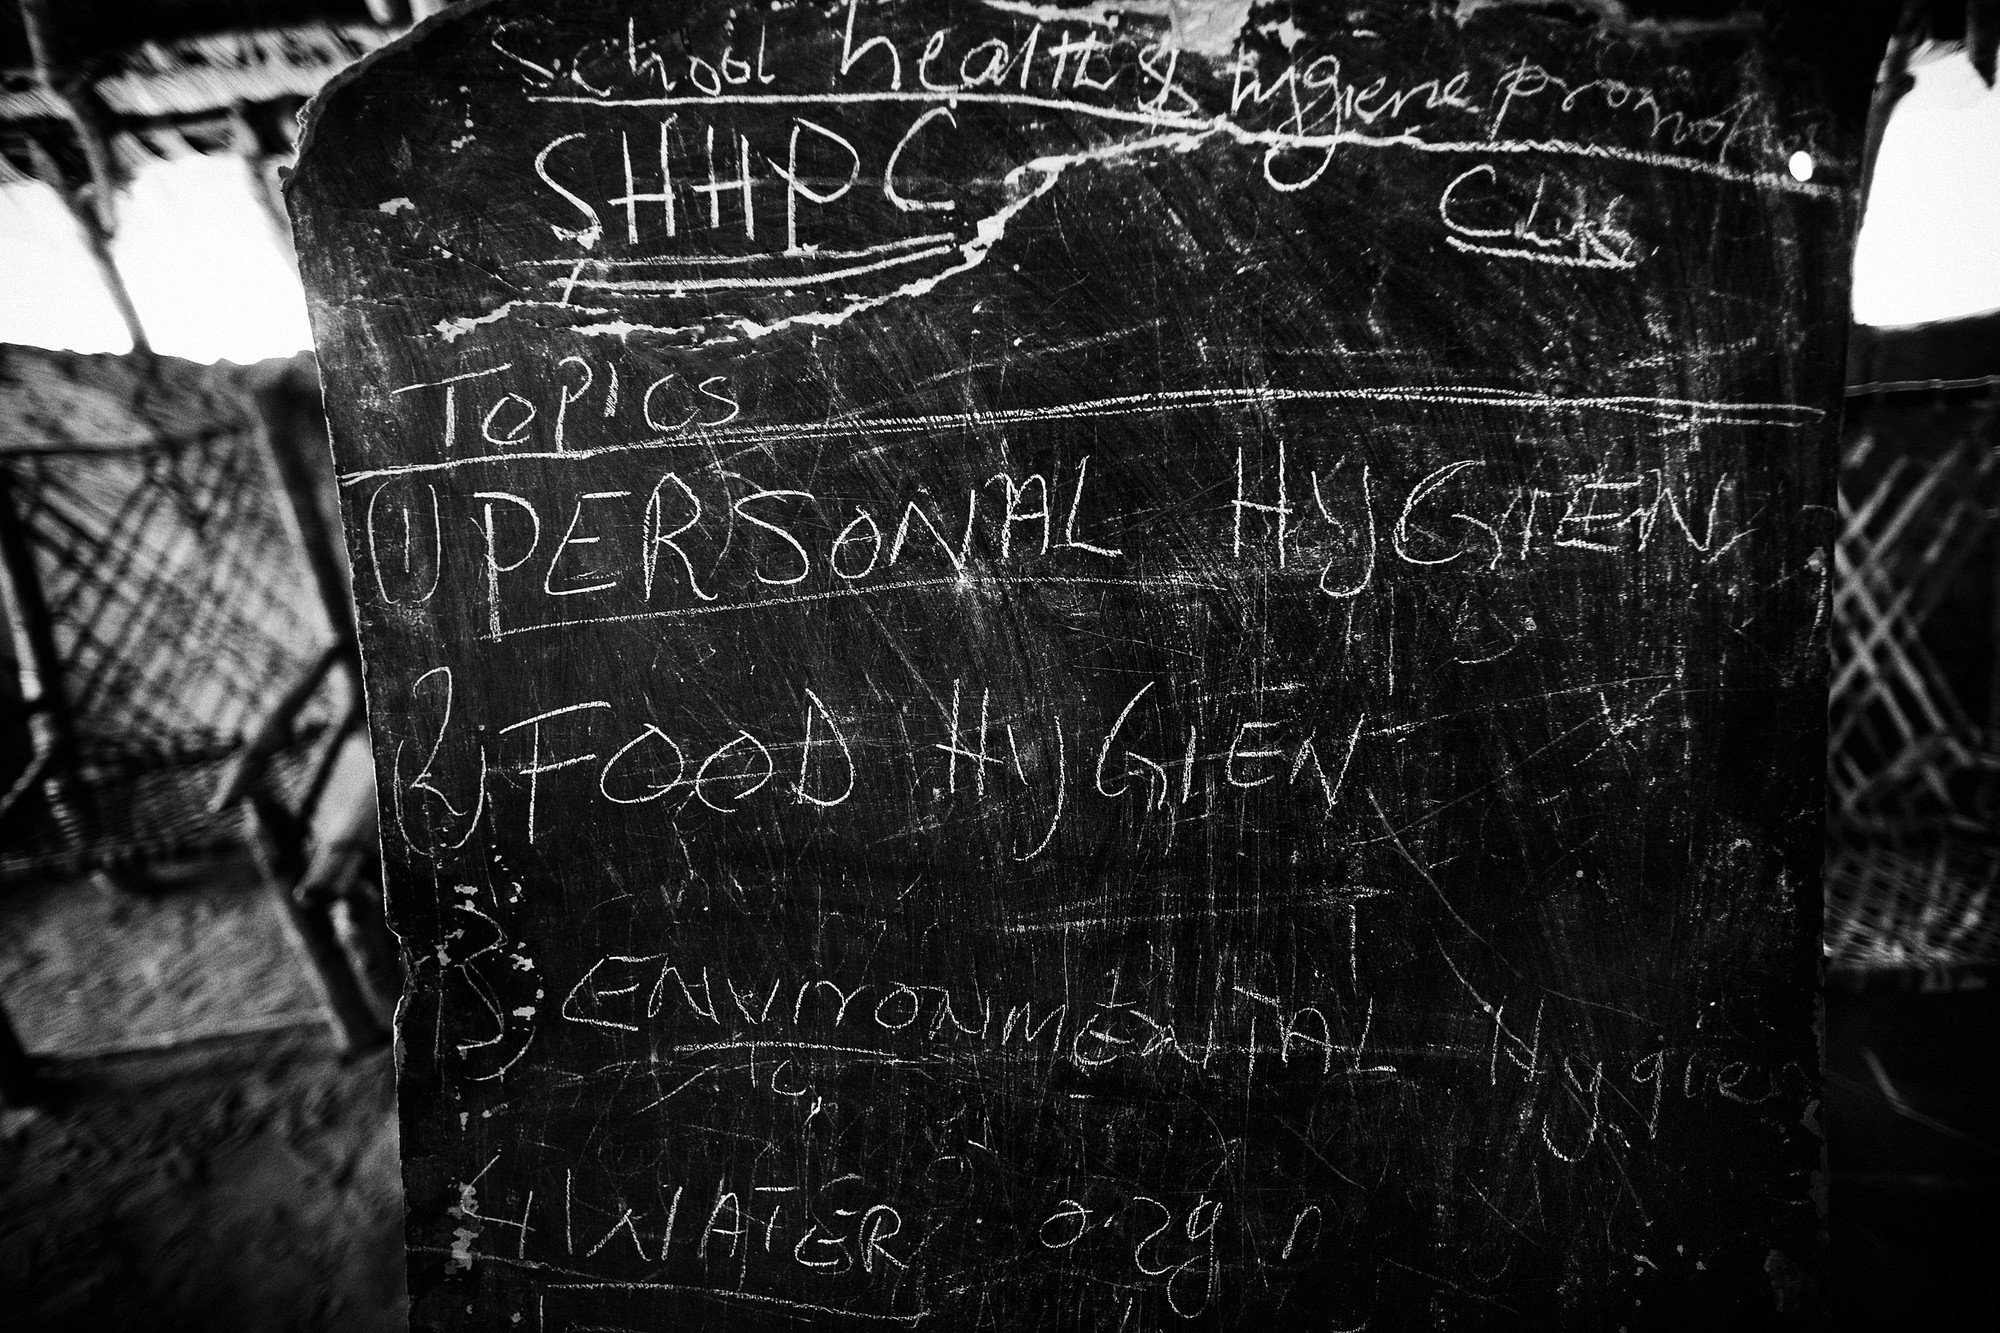 School health & hygiene promot
SHHPC
Club
Topics
1) PERSONAL HYGIEN
2) FOOD HYGIEN
3) ENVIRONMENTAL Hygien
4) WATER